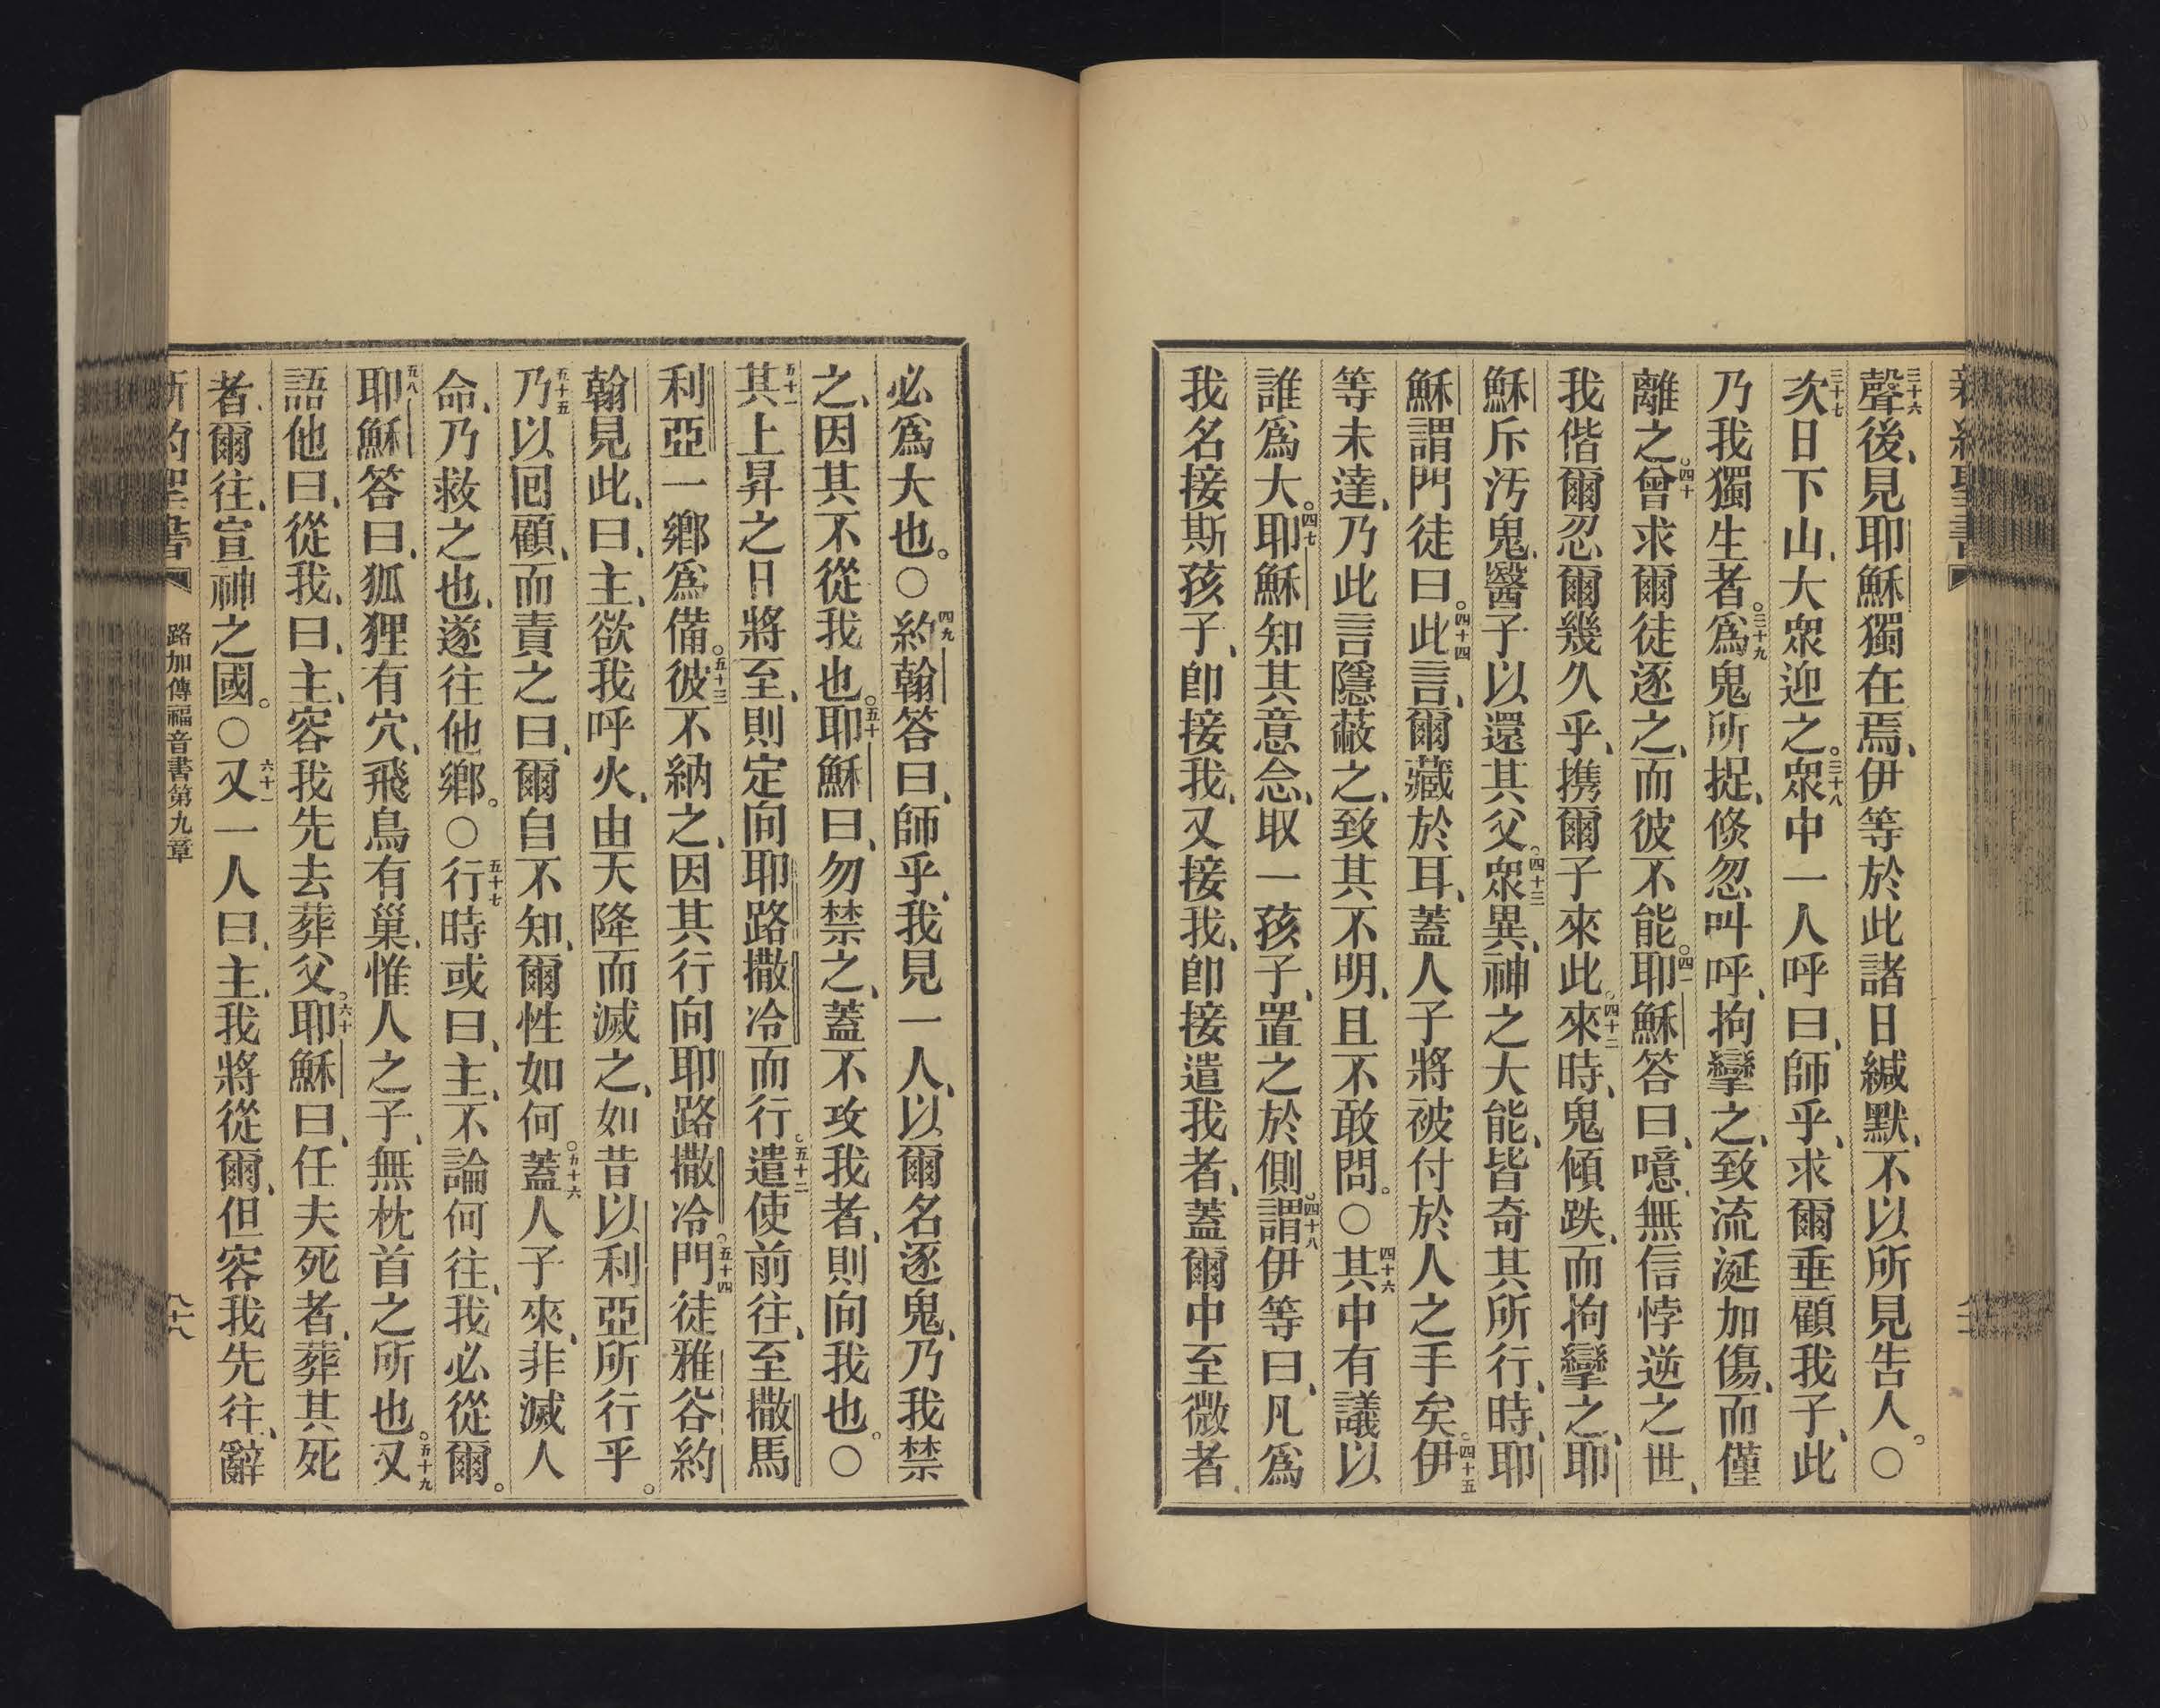 新約聖書
三十六聲後、見耶穌獨在焉、伊等於此諸日緘默、不以所見告人。○
三十七次日下山、大眾迎之。三十八眾中一人呼曰、師乎、求爾垂顧我子、此
乃我獨生者。三十九爲鬼所捉、倏忽叫呼、拘攣之、致流涎加傷、而僅
離之。四十曾求爾徒逐之、而彼不能。四一耶穌答曰、噫、無信悖逆之世、
我偕爾忍爾幾久乎、携爾子來此。四十二來時、鬼傾跌、而拘攣之、耶
穌斥汚鬼、醫子以還其父。四十三眾異、神之大能、皆奇其所行、時、耶
穌謂門徒曰。四十四此言、爾藏於耳、蓋人子將被付於人之手矣。四十五伊
等未達、乃此言隱蔽之、致其不明、且不敢問。○四十六其中有議以
誰爲大。四七耶穌知其意念、取一孩子、置之於側。四十八謂伊等曰、凡爲
我名接斯孩子、卽接我、又接我、卽接遣我者、蓋爾中至微者、
必爲大也。○四九約翰答曰、師乎、我見一人、以爾名逐鬼、乃我禁
之、因其不從我也。五十耶穌曰、勿禁之、蓋不攻我者、則向我也。○
五十一其上昇之日將至、則定向耶路撒冷而行。五十二遣使前往、至撒馬
利亞一鄉爲備。五十三彼不納之、因其行向耶路撒冷。五十四門徒雅谷約
翰見此、曰、主、欲我呼火、由天降而滅之、如昔以利亞所行乎。
五十五乃以回顧、而責之曰、爾自不知、爾性如何。五十六蓋人子來、非滅人
命、乃救之也、遂往他鄉。○五十七行時或曰、主、不論何往、我必從爾。
五八耶穌答曰、狐狸有穴、飛鳥有巢、惟人之子、無枕首之所也。五十九又
語他曰、從我、曰、主、容我先去葬父。六十耶穌曰、任夫死者、葬其死
者、爾往、宣神之國。○六十一又一人曰、主、我將從爾、但容我先往、辭
新約聖書 路加傳福音書第九章 八十八